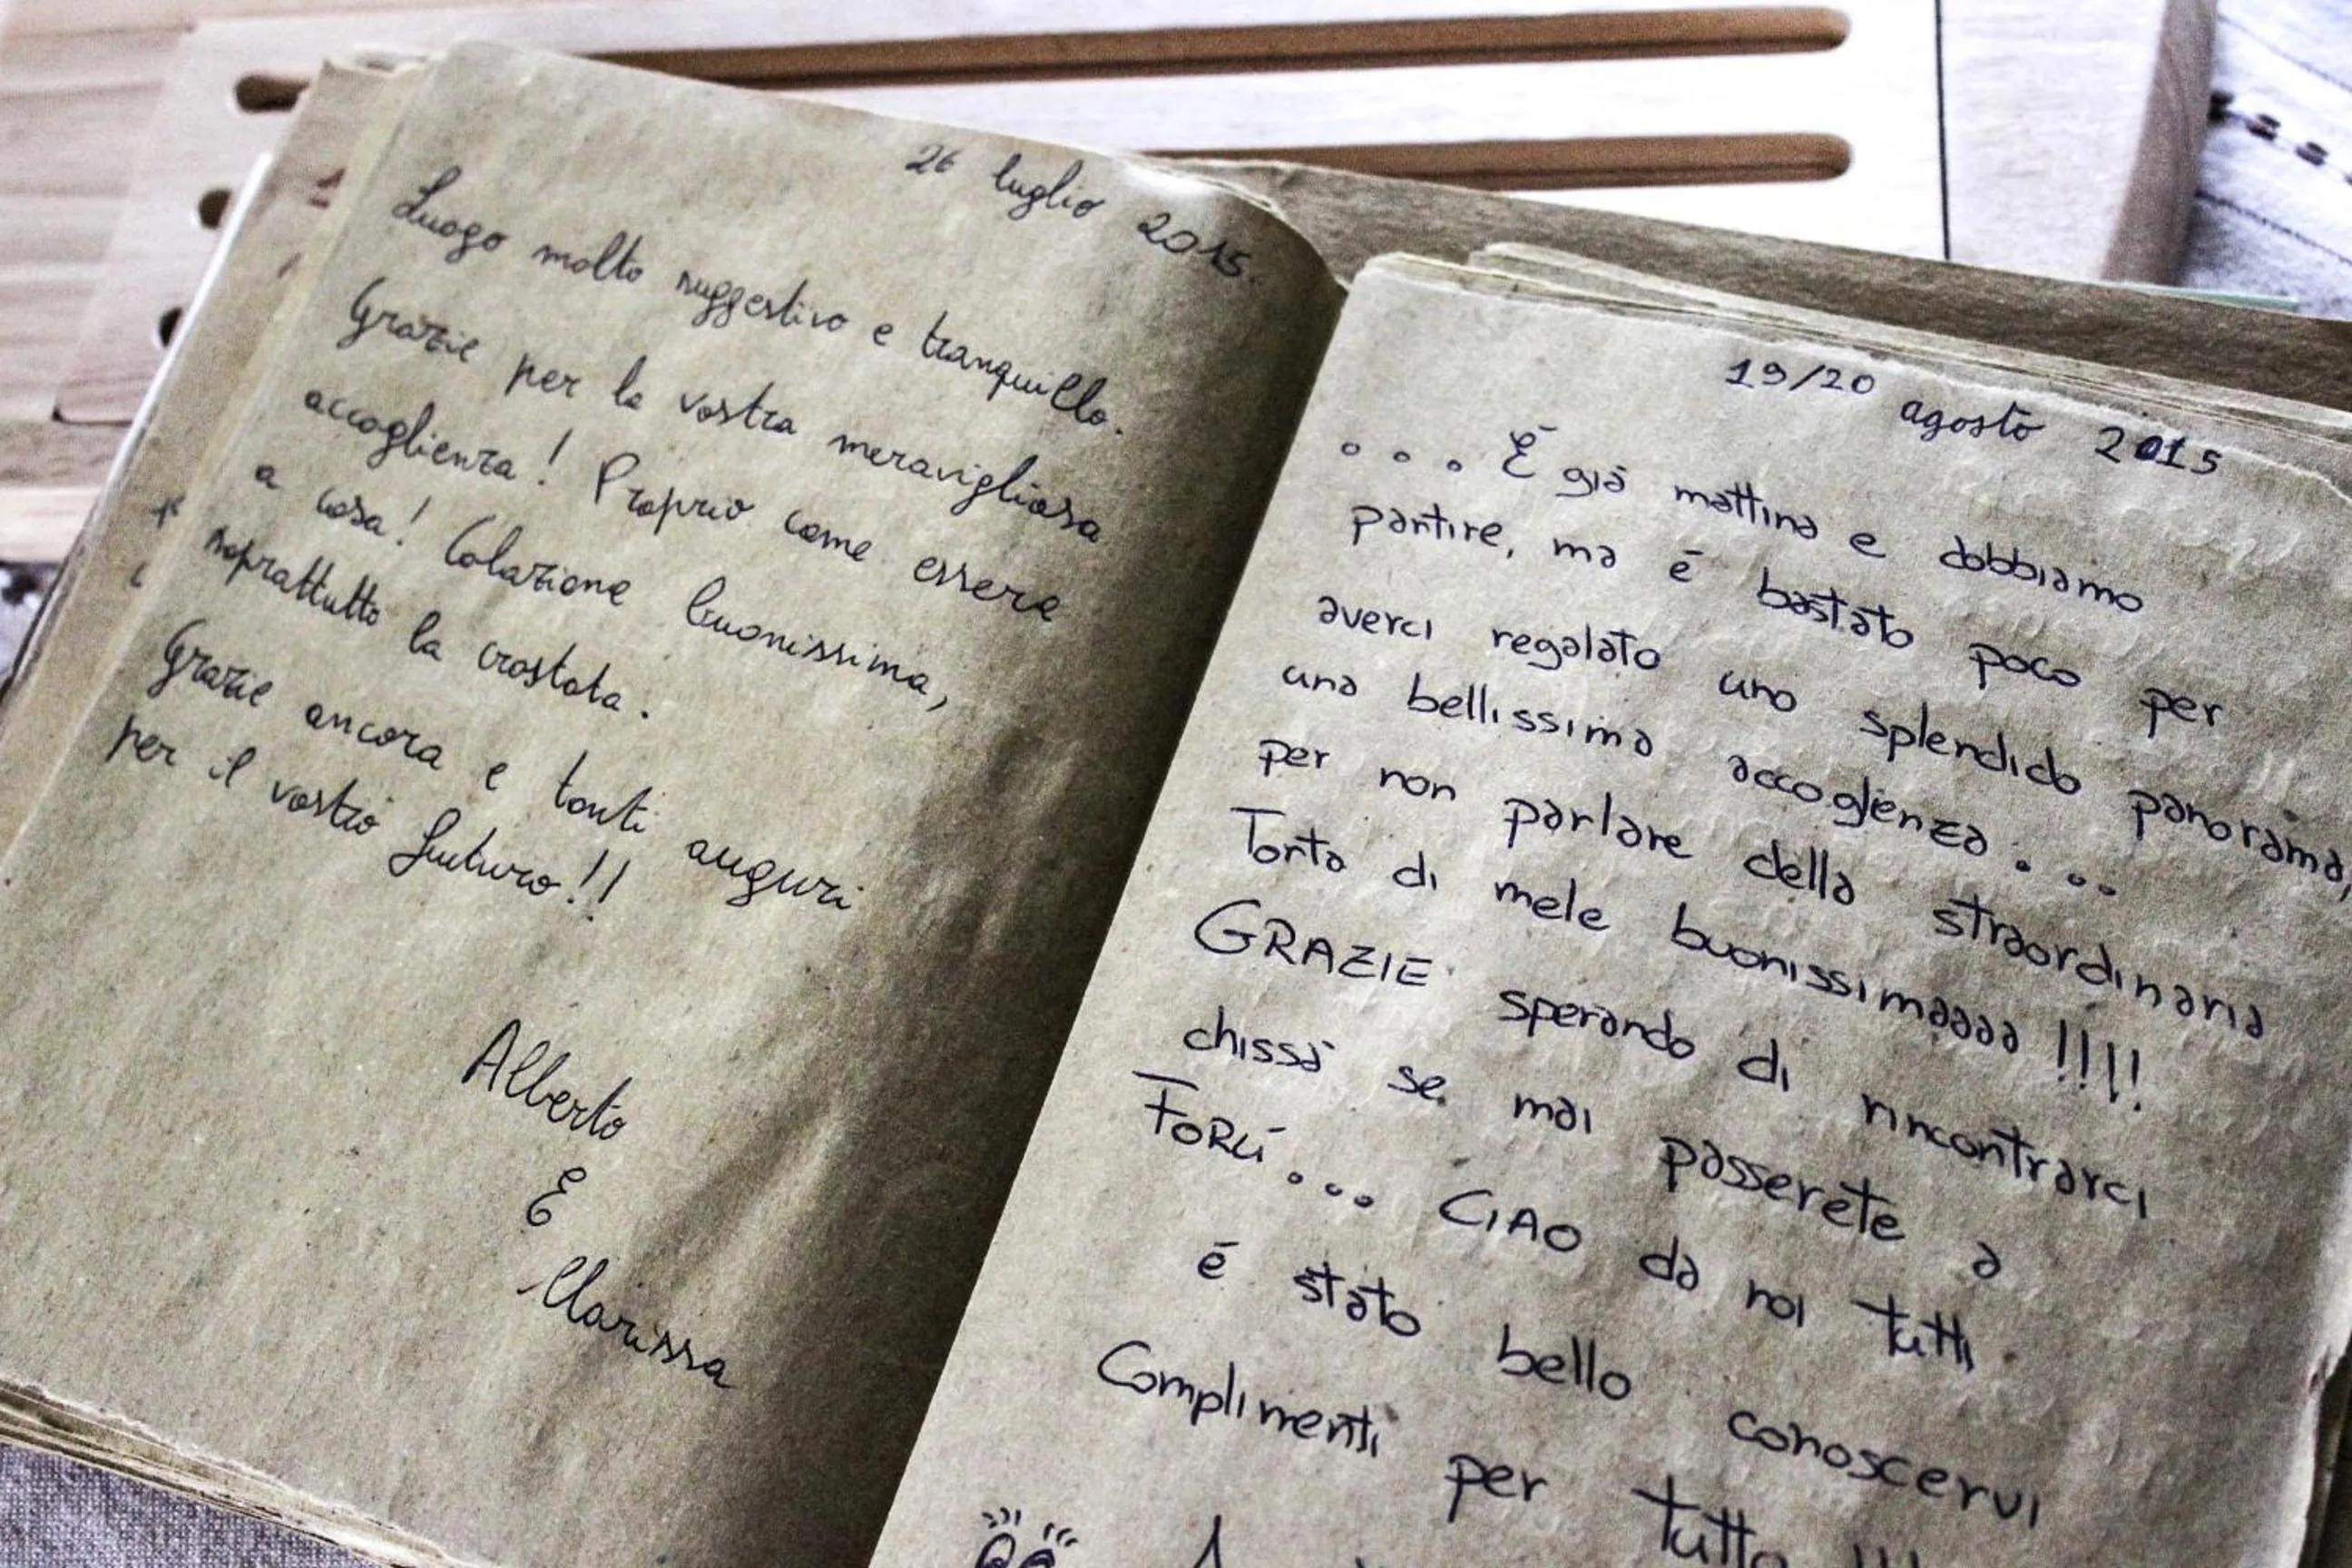 26 luglio 2015.
Luogo molto suggestivo e tranquillo.
Grazie per la vostra meravigliosa
accoglienza! Proprio come essere
a casa! Colazione buonissima,
soprattutto la crostata.
Grazie ancora e tanti auguri
per il vostro futuro!!
Alberto
E
Marissa
19/20 agosto 2015
... È già mattina e dobbiamo
partire, ma é bastato poco per
averci regalato uno splendido panorama,
una bellissima accoglienza...
per non parlare della straordinaria
Torta di mele buonissimaaaa !!!!
GRAZIE sperando di rincontrarci
chissà se mai passerete a
FORLÍ... CIAO da noi tutti
é stato bello conoscervi
Complimenti per tutto !!!